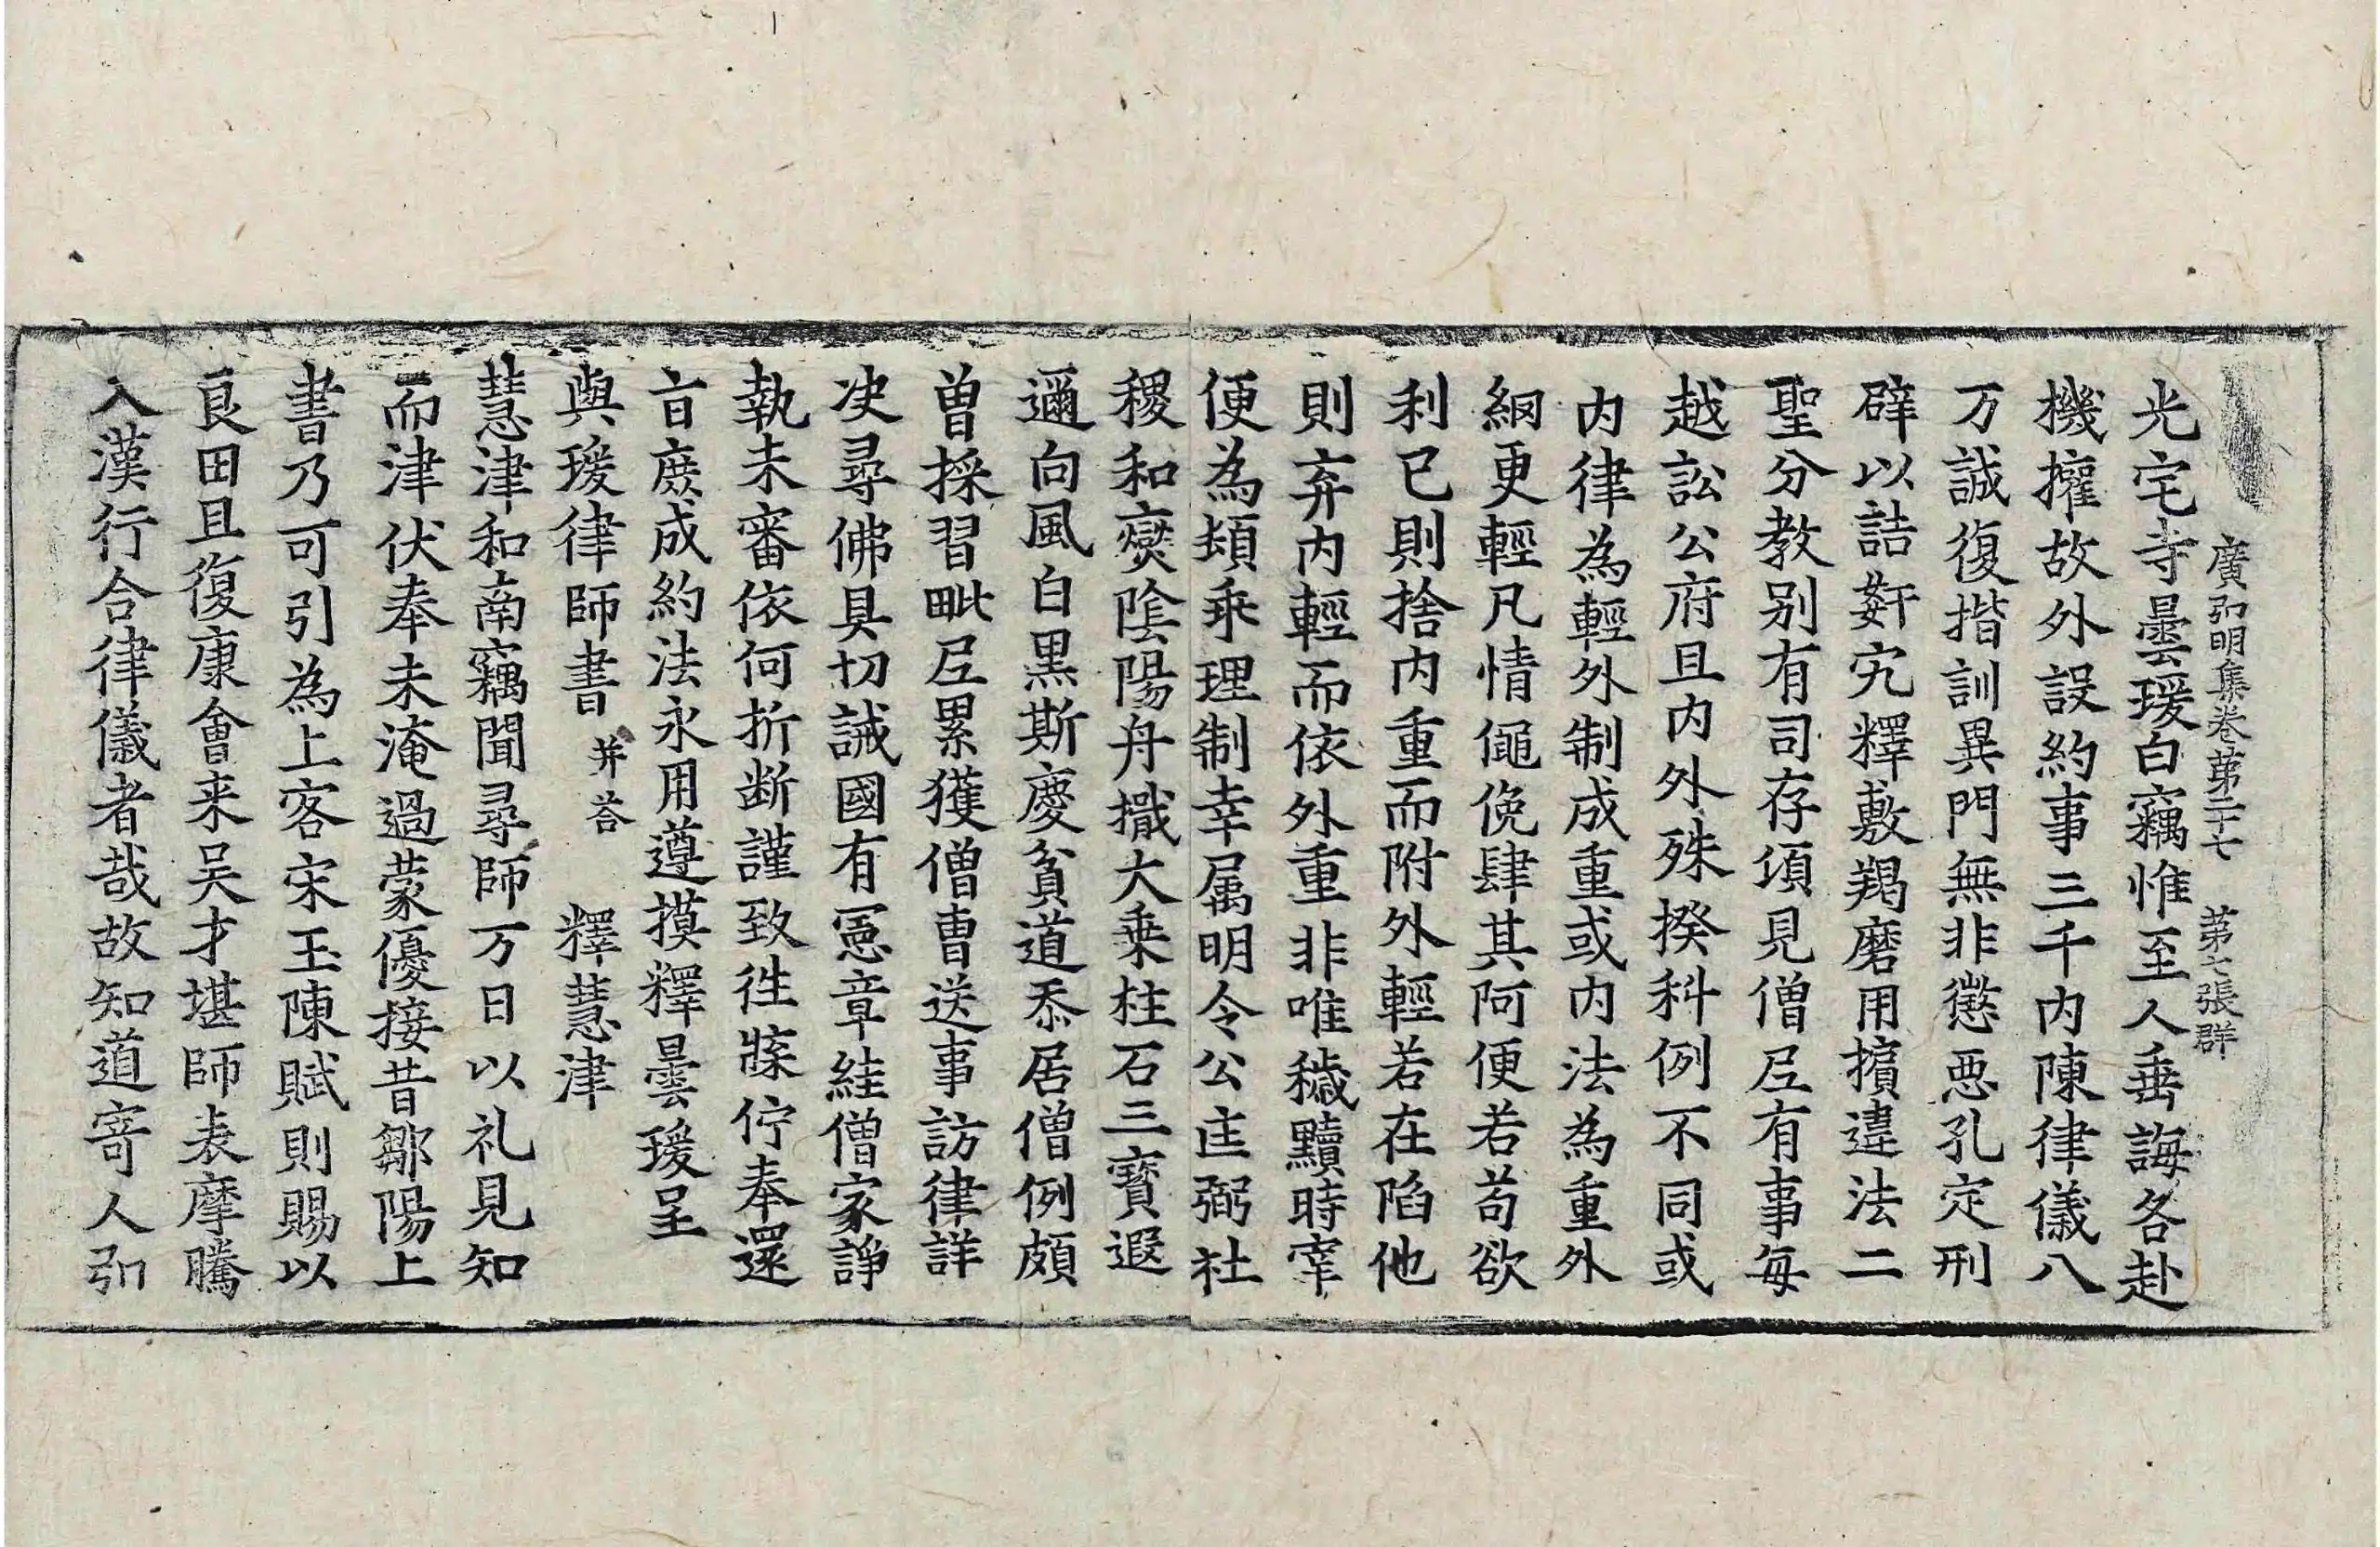 廣弘明集卷苐二十七　苐七張群
光宅寺曇瑗白竊惟至人垂誨各赴
機權故外設約事三千内陳律儀八
万誠復揩訓異門無非懲恶孔定刑
辟以詰姧宄釋敷羯磨用擯違法二
聖分教别有司存頃見僧尼有事每
越訟公府且内外殊揆科例不同或
内律為輕外制成重或内法為重外
網更輕凡情僶俛肆其阿便若苟欲
利已則捨内重而附外輕若在陷他
則弃内輕而依外重非唯穢黷時宰
便為頓乖理制幸属明令公匡弼社
稷和燮陰陽舟檝大乗柱石三寳遐
邇向風白黒斯慶貧道忝居僧例頗
曽採習毗尼累獲僧曹送事訪律詳
决尋佛具切誡國有憲章結僧家諍
執未審依何折断謹致徃牒佇奉還
旨庻成約法永用遵摸釋曇瑗呈
與瑗律師書 并荅　釋慧津
慧津和南竊聞尋師万日以礼見知
而津伏奉未淹過蒙優接昔鄒陽上
書乃可引為上客宋玉陳賦則賜以
良田且復康會来吴才堪師表摩騰
入漢行合律儀者哉故知道寄人弘